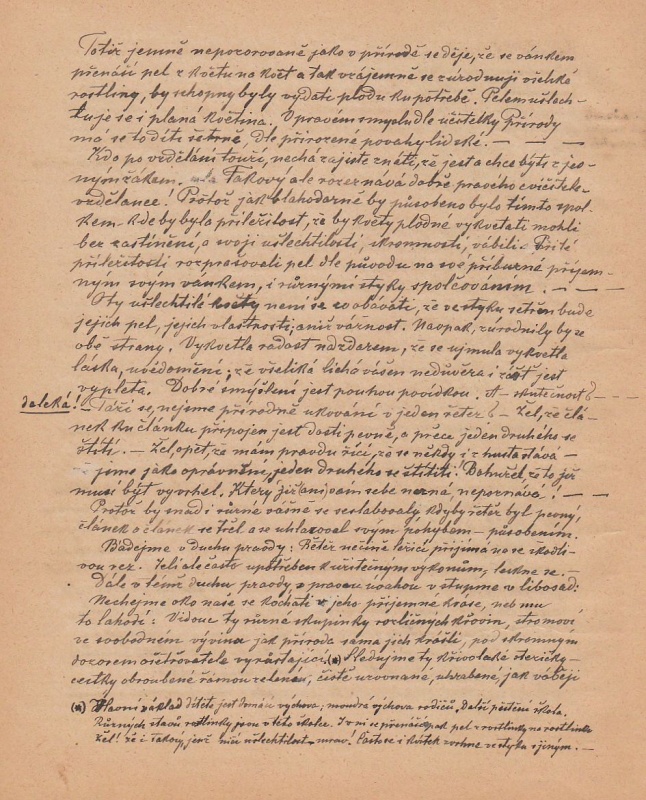 Totiž jemně nepozorovaně jako v přírodě se děje, že se vánkem
přenáší pel z květu na květ a tak vzájemně se zúrodňují všeliké
rostliny, by schopny byly vydati plodu ku potřebě. Pelem ušlech-
ťuje se i planá květina. V pravém smyslu dle učitelky Přírody
má se to díti šetrně, dle přirozené povahy lidské. — — —
Kdo po vzdělání touží, nechá zajisté zněti, že jest a chce býti z jes-
ným žákem. Takový ale rozeznává dobře pravého cvičitele
vzdělance! Protož jak blahodarně by působeno bylo tímto spol-
kem - kde by byla příležitost, že by květy plodné vykvetati mohli
bez zastínění, a svojí ušlechtilostí, skromností, vábili. Při té
příležitosti rozprašovali pel dle původu na své příbuzné příjem-
ným svým vánkem, i různými styky společováním. — ! — —
Oty ušlechtilé květy není se co obávati, že ve styku setřen bude
jejich pel, jejich vlastnosti; aniž vážnost. Naopak, zúrodnily by se
obě strany. Vykvetla radost nad zdarem, že se ujmula vykvetla
láska, uvědomění; že všeliká lichá vášeň nedůvěra i zášť jest
vypleta. Dobré smýšlení jest pouhou povídkou. A - skutečnost? — —
daleká! — Táži se, nejsme přírodně ukováni v jeden řetěz? — Žel, že člá-
nek ku článku připojen jest dosti pevně, a přece jeden druhého se
štítí. — Žel, opět, že mám pravdu říci, že se někdy i z husta stává —
jsme jako oprávněni, jeden druhého se štítiti! Bohužel, že to již
musí být vyvrhel. Který již ani sebe nezná, nepoznává! — — —
Protož by snad i různé vášně se seslabovaly kdyby řetěz byl pevný,
článek o článek se třel a se uhlazoval svým pohybem — působením.
Bádejme v duchu pravdy: Řetěz nečinně ležící přijímá na se škodli-
vou rez. Jeli ale často upotřeben k užitečným výkonům, leskne se. —
Dále v témž duchu pravdy s pravou úvahou vstupme v libosad:
Nechejme oko naše se kochati v jeho příjemné kráse, neb mu
to lahodí: Vidouc ty různé skupinky rozličných křovin, stromoví
ve svobodném vývinu jak příroda sama jich krášlí, pod skromným
dozorem ošetřovatele vyrůstající. (*) Sledujme ty křivolaké stezičky —
cestky obroubené šámou zelenou, čistě urovnané, uhrabené, jak vábějí
(*) Hlavní základ dítěte jest domácí výchova, moudrá výchova rodičů, Další pěstění škola.
Různých stavů rostlinky jsou v této školce. I z ní se přenáší pak pel z rostlinky na rostlinku
Žel! že i takový jenž ničí ušlechtilost mravů! Často se i kvítek zvrhne ve styku s jiným. —